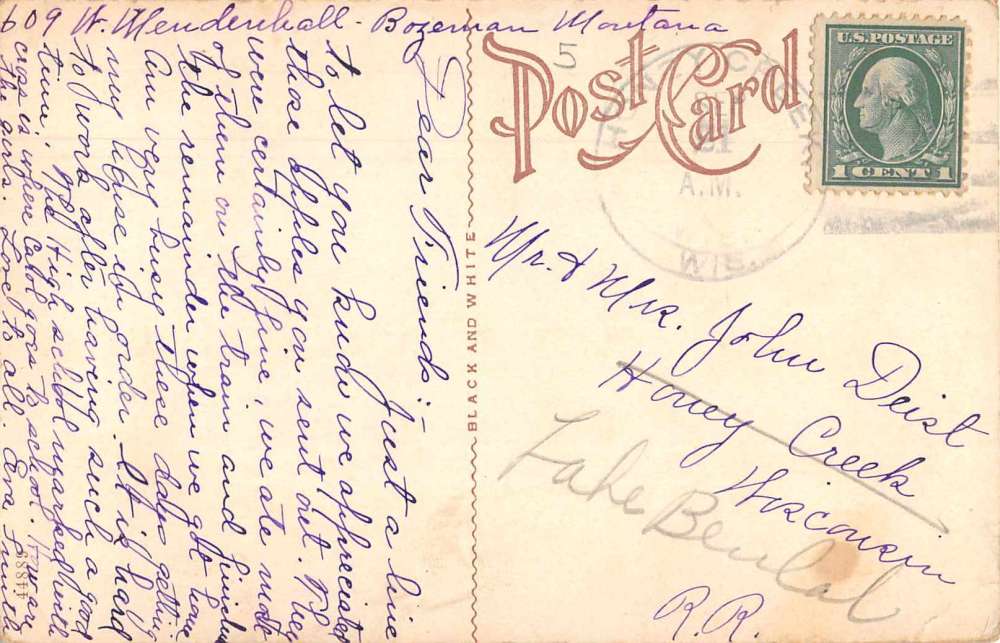 609 W. Mendenhall - Bozeman Montana
Dear Friends:-
Just a line
to let you kind we appreciated
those apples you sent out. They
were certainly fine, we ate most
of them on the train and finished
the remainder when we got home
Am very busy these days getting
my house in order. It is hard
to work after having such a good
time. The High school marked with
cross is where Carol goes to school.
the girls. Love to all. Eva Smith
44889
BLACK AND WHITE
Post Card
5
A.M.
WIS.
U.S. POSTAGE
1 CENT 1
Mr. & Mrs. John Deist
Honey Creek
Wisconsin
R.R.
Lake Beulah